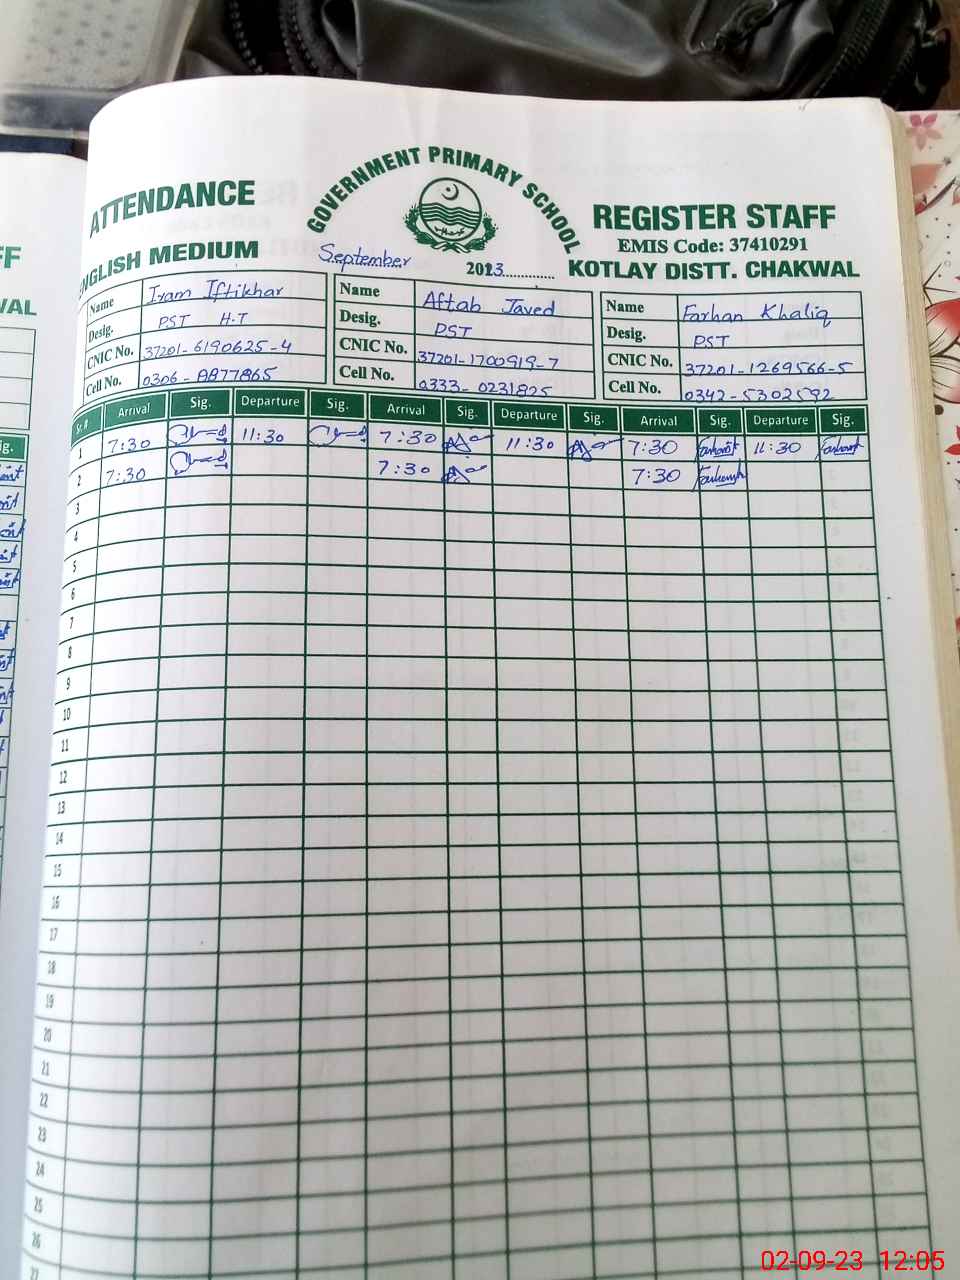 GOVERNMENT PRIMARY SCHOOL
ATTENDANCE
REGISTER STAFF
EMIS Code: 37410291
ENGLISH MEDIUM
September 2023
KOTLAY DISTT. CHAKWAL
Name Iram Iftikhar
Desig. PST H.T
CNIC No. 37201-6190625-4
Cell No. 0306-8877865
Name Aftab Javed
Desig. PST
CNIC No. 37201-1700919-7
Cell No. 0333-0231825
Name Farhan Khaliq
Desig. PST
CNIC No. 37201-1269566-5
Cell No. 0342-5302592
Sr.# Arrival Sig. Departure Sig. Arrival Sig. Departure Sig. Arrival Sig. Departure Sig.
1 7:30 11:30 7:30 11:30 7:30 11:30
2 7:30 7:30 7:30
3
4
5
6
7
8
9
10
11
12
13
14
15
16
17
18
19
20
21
22
23
24
25
26
27
02-09-23 12:05